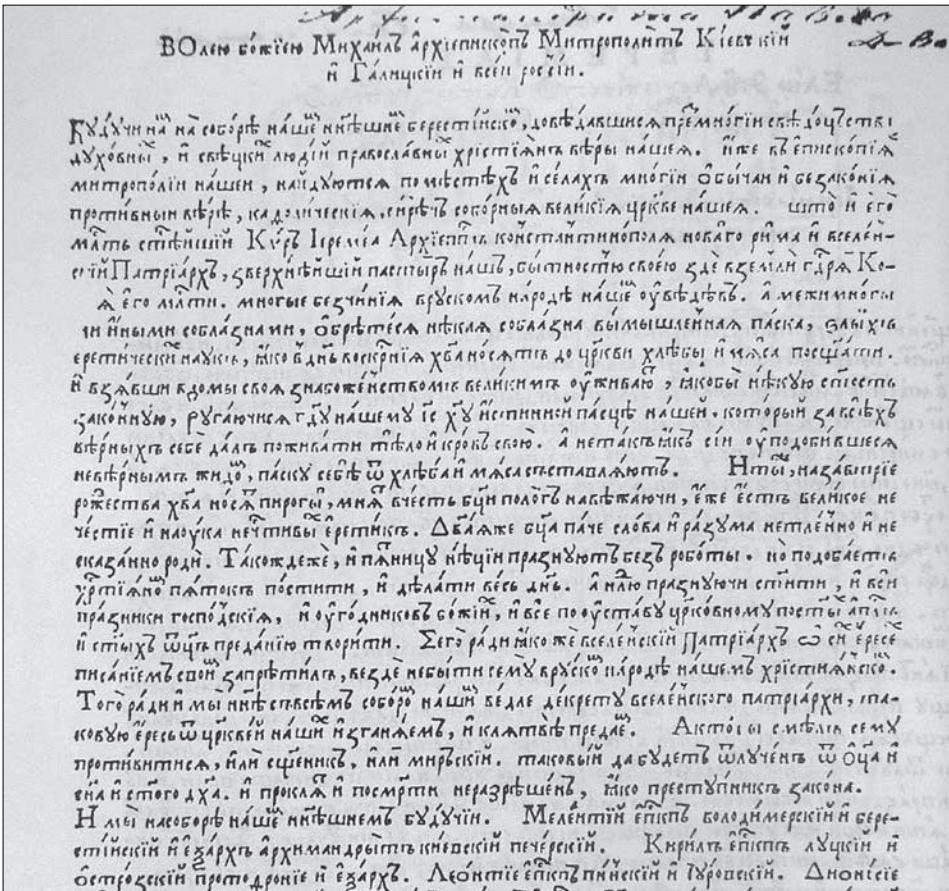 ВОлею бо́жїею Михаи́лъ а҆рхїепископъ Митрополи́тъ Кі́евъкїй
и҆ Га́лицкїй и҆ всеи̂ россі́и.
Бꙋ́дꙋчи на́ на собо́рѣ на́ше ни́нѣшне берести́йско, довѣ́давшися пре́мно́гїи свѣ́доцъства
дꙋхо́вны, и҆ свѣ́цки люді́й правосла́вны хрїстїя́нъ вѣ́ры на́шея. и҆же въ е҆писко́пїꙗ
митропо́лїи на́шеи, на́йдꙋются по мѣ́стѣхъ и҆ се́лахъ мно́гїи ѡ҆бы́чаи и҆ беззако́нїя
проти́вныи вѣ́рѣ, каѳоли́ческїя, си́рѣчъ собо́рныя вели́кїя цр҃кве на́шея. што̀ и҆ е҆го̀
мл҃тъ ст҃ѣйшїй Кѵ́ръ І҆еремі́а Архїепп҃ъ ко́нстантинопо́ля но́ваго ри́ма и҆ вселе́н-
скїй Патрїа́рхъ, зверхнѣ́йшїй па́стыръ на́шъ, бы́тностю своею здѐ взе́мли гд҃рꙗ̀ Ко-
ꙗ̀ е҆го мл҃ти. мно́гые безчи́нїя врꙋ́скомъ наро́дѣ на́ше оу҆вѣ́дѣвъ. а҆ ме́жи мно́гы
ми и҆́ными собла́знами, ѡ҆брѣ́теся нѣ́кая собла́зна вы́мышленная па́ска, злы́хъ
е҆рети́чески наꙋкъ, ꙗ҆́ко в дн҃ь воскр҃нїя хв҃а но́сятъ до цр҃кви хлѣ́бы и҆ мꙗ́са посщати.
и҆ взѧ́вши в до́мы своя з набоже́нствомъ вели́кимъ оу҆жива́ю, ꙗ҆кобы̀ нѣ́кꙋю ст҃ость
зако́ннꙋю, рꙋга́ючися гд҃ꙋ на́шемꙋ і҆с хꙋ҃ и҆́стинней па́сцѣ на́шей, кото́рый за всѣ́хъ
вѣ́рныхъ себѐ да́лъ пожива́ти тѣ́ло и҆ кро́въ свою. а҆ не та́къ ꙗ҆къ сїи оу҆подо́бившеся
невѣ́рнымъ жидо̀, па́скꙋ себѣ̀ ѿ хлѣ́ба и҆ мꙗ́са съставля́ютъ. И҆ ты, на за́втрїе
рожества̀ хв҃а но́сѧ пироги́, мнꙗ̀ в че́сть бц҃и поло́гъ навѣжа́ючи, е҆же е҆́стъ вели́кое не
че́стїе и҆ наꙋка нечти́вы е҆ре́тикъ. Дв҃аꙗже бц҃а па́че сло́ва и҆ ра́зꙋма нетлѣ́нно и҆ не
сказа́нно роди̂. Та́кождеже, и҆ пꙗ́тницꙋ нѣ́цїи пра́знꙋютъ безъ робо́ты. но подоба́етъ
хр҃тїꙗ́но пꙗ́токъ по́стити, и҆ дѣ́лати ве́сь дн҃ь. а҆ нлю пра́знꙋючи ст҃ити, и҆ всѝ
пра́зники госпо́дскїя, и҆ оу҆го́дниковъ бо́жїй, и҆ все по оу҆ста́вꙋ цр҃ко́вномꙋ посты̀ а҆пл҃ъ
и҆ ст҃ыхъ ѿц҃ъ преда́нїю твори́ти. Сего̀ ра́ди ꙗ҆́коже вселе́нскїй Патрїа́рхъ ѡ҆ сй е҆ресе̂
писа́нїемъ свои̂ запрѣти́лъ, везде небы́ти семꙋ в рꙋско̂ наро́дѣ на́шемъ хрїстиꙗ́нско.
Того̀ ра́ди и҆ мы̀ ни́нѣ съ всѣ́мъ собо́ро на́ши ве́дле декре́тꙋ вселе́нского патрїа́рхи, та-
ковꙋю е҆ре́сь ѿ цр҃кве́й на́ши и҆зганꙗ́емъ, и҆ кля́твѣ предае̂. А кто́ бы смѣ́лъ семꙋ
проти́витися, и҆лѝ сщ҃е́никъ, и҆лѝ ми́рскїй. та́ковый да бꙋдетъ ѿлꙋ́ченъ ѿ о҆ц҃а и҆
сн҃а и҆ ст҃ого дх҃а. и҆ прокля̂ и҆ по см҃рти неразрѣше́нъ, ꙗ҆́ко престꙋ́пникъ зако́на.
И҆ мы̀ на собо́рѣ на́ше ни́нѣшнемъ бꙋ́дꙋчїи. Меле́нтїй е҆пк҃пъ володи́мерскїй и҆ бере-
сті́йскїй и҆ е҆ѯа́рхъ а҆рхимандры́тъ ки́евскїй пече́рскїй. Кири́лъ е҆пк҃пъ лꙋцкїй и҆
ѻ҆стро́зскїй протодро́нїе и҆ е҆ѯа́рхъ. Лео́нтїе е҆пк҃пъ пи́нскїй и҆ Тꙋ́ровскїй. Дїони́сїе